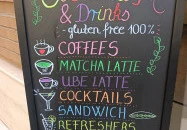 & Drinks
-gluten free 100%-
COFFEES
MATCHA LATTE
UBE LATTE
COCKTAILS
SANDWICH
REFRESHERS